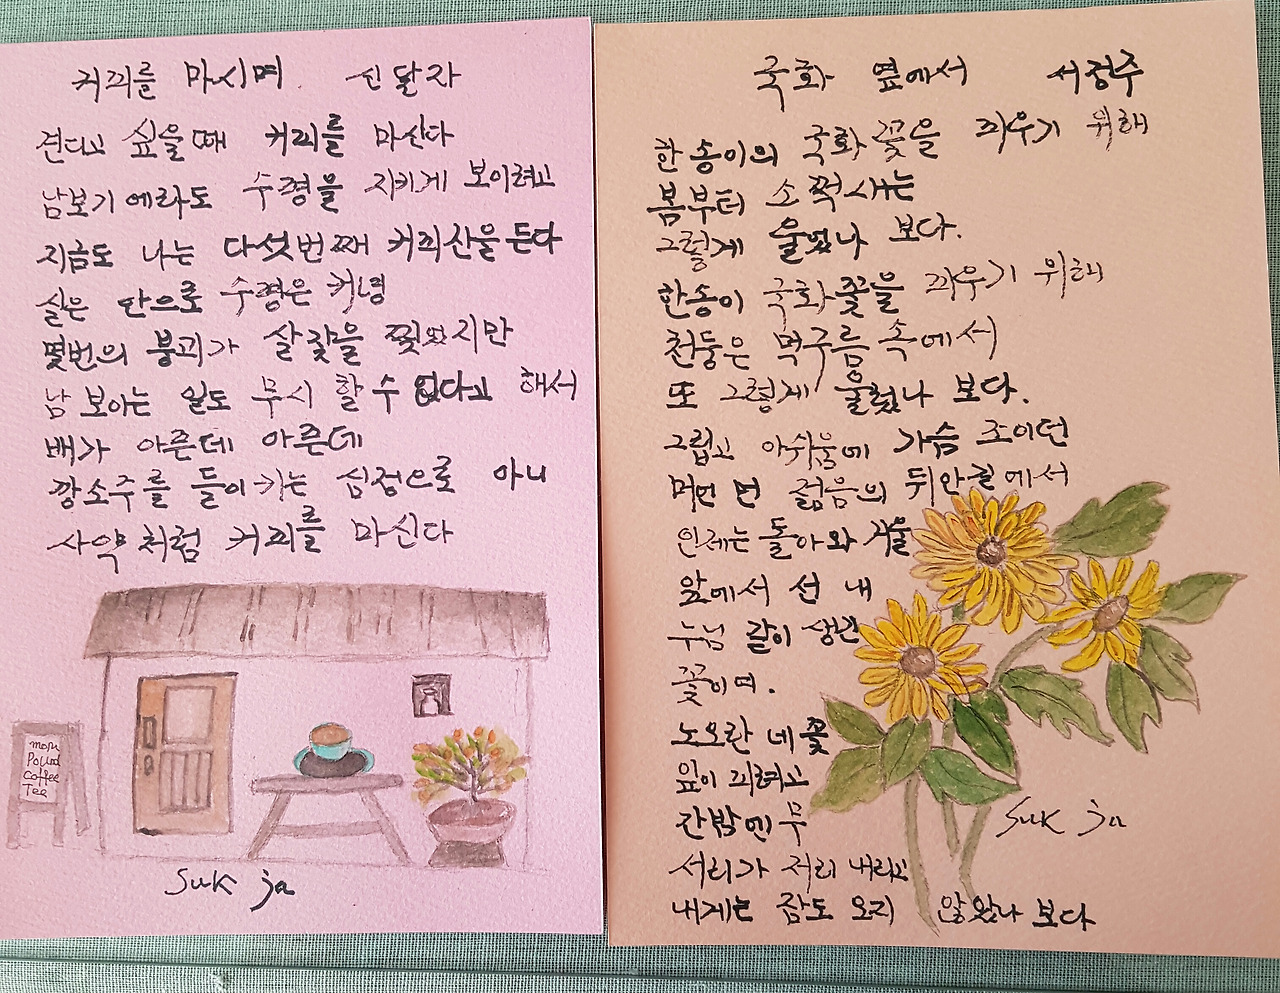 커피를 마시며 신달자
견디고 싶을때 커피를 마신다
남보기 에라도 수평을 지키게 보이려고
지금도 나는 다섯번째 커피잔을 든다
실은 안으로 수평은 커녕
몇번의 붕괴가 살갗을 찢었지만
남 보이는 일도 무시 할 수 없다고 해서
배가 아픈데 아픈데
깡소주를 들이 키는 심정으로 아니
사약처럼 커피를 마신다
Coffee
Tee
Suk ja
국화 옆에서 서정주
한 송이의 국화 꽃을 피우기 위해
봄부터 소쩍새는
그렇게 울었나 보다.
한송이 국화꽃을 피우기 위해
천둥은 먹구름 속에서
또 그렇게 울렀나 보다.
그립고 아쉬움에 가슴 조이던
머언 먼 젊음의 뒤안길에서
인제는 돌아와 거울
앞에서 선 내
누님 같이 생긴
꽃이여.
노오란 네 꽃
잎이 피려고
간밤엔 무
서리가 저리 내리고
내게는 잠도 오지 않았나 보다
Suk ja